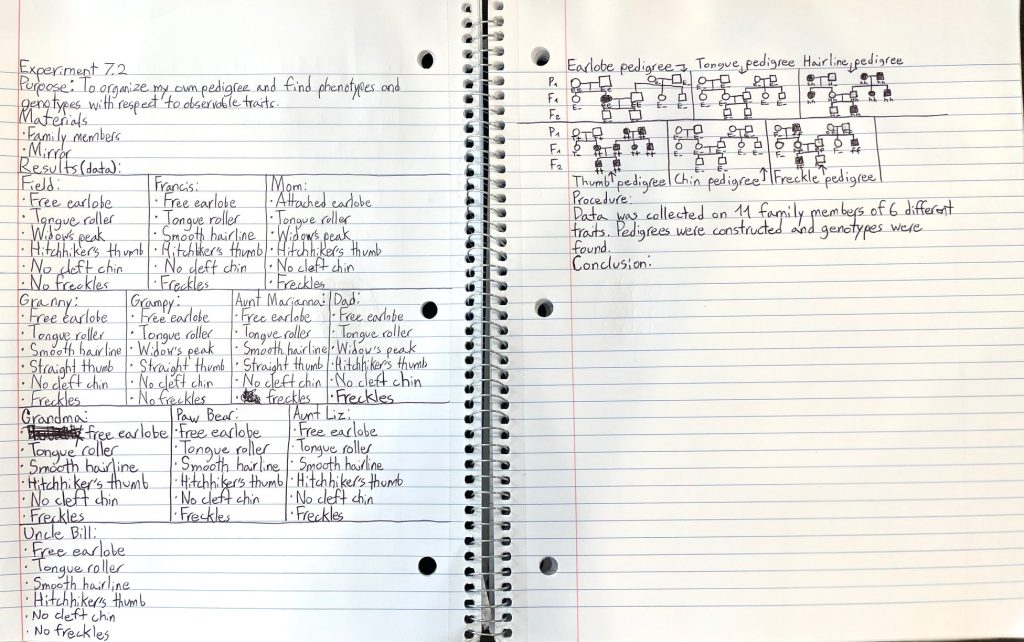 Experiment 7.2
Purpose: To organize my own pedigree and find phenotypes and
genotypes with respect to observable traits.
Materials
· Family members
· Mirror
Results (data):
Field:
· Free earlobe
· Tongue roller
· Widows peak
· Hitchhiker's thumb
· No cleft chin
· No freckles
Francis:
· Free earlobe
· Tongue roller
· Smooth hairline
· Hitchhiker's thumb
· No cleft chin
· Freckles
Mom:
· Attached earlobe
· Tongue roller
· Widows peak
· Hitchhiker's thumb
· No cleft chin
· Freckles
Granny:
· Free earlobe
· Tongue roller
· Smooth hairline
· Straight thumb
· No cleft chin
· Freckles
Grampy:
· Free earlobe
· Tongue roller
· Widow's peak
· Straight thumb
· No cleft chin
· No freckles
Aunt Marianna:
· Free earlobe
· Tongue roller
· Smooth hairline
· Straight thumb
· No cleft chin
· freckles
Dad:
· Free earlobe
· Tongue roller
· Widow's peak
· Hitchhiker's thumb
· No cleft chin
· Freckles
Grandma:
· free earlobe
· Tongue roller
· Smooth hairline
· Hitchhiker's thumb
· No cleft chin
· Freckles
Paw Bear:
· Free earlobe
· Tongue roller
· Smooth hairline
· Hitchhiker's thumb
· No cleft chin
· Freckles
Aunt Liz:
· Free earlobe
· Tongue roller
· Smooth hairline
· Hitchhiker's thumb
· No cleft chin
· Freckles
Uncle Bill:
· Free earlobe
· Tongue roller
· Smooth hairline
· Hitchhiker's thumb
· No cleft chin
· No freckles
Earlobe pedigree Tongue pedigree Hairline pedigree
P₁
F₁
F₂
P₁
F₁
F₂
Thumb pedigree Chin pedigree Freckle pedigree
Procedure:
Data was collected on 11 family members of 6 different
traits. Pedigrees were constructed and genotypes were
found.
Conclusion: